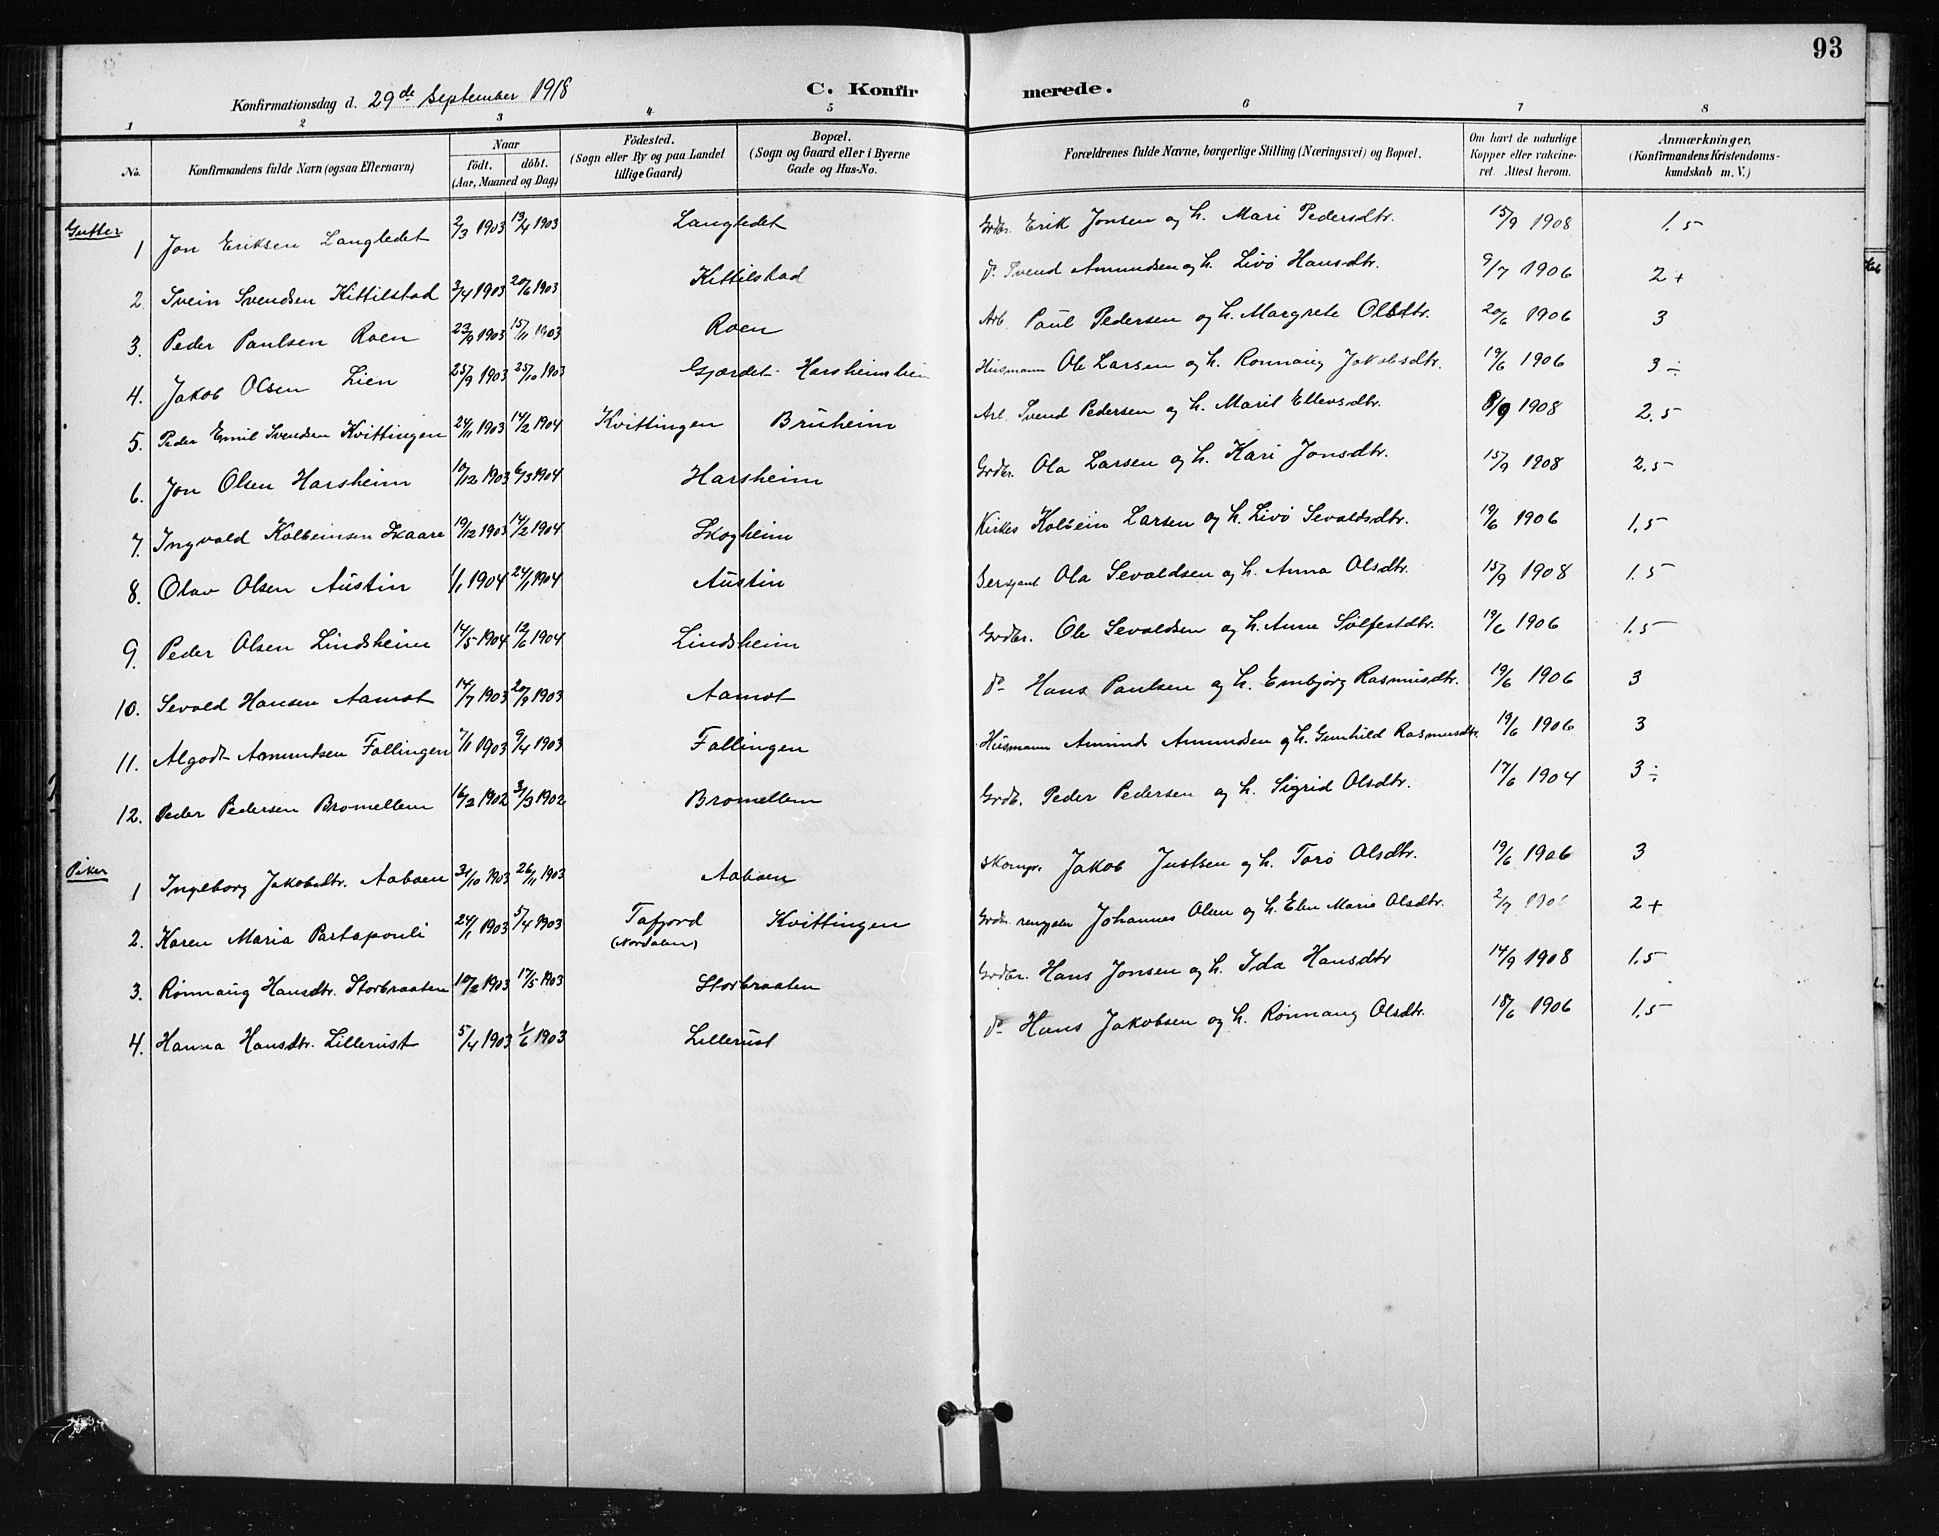 93
Konfirmationsdag d. 29de September 1918 C. Konfirmerede.
1 2 3 4 5 6 7 8
No. Konfirmandens fulde Navn (ogsaa Efternavn) Naar födt. döbt. (Aar, Maaned og Dag) Födested. (Sogn eller By og paa Landet tillige Gaard) Bopæl. (Sogn og Gaard eller i Byerne Gade og Hus-No. Forældrenes fulde Navne, borgerlige Stilling (Næringsvei) og Bopæl. Om havt de naturlige Kopper eller vakcineret. Attest herom. Anmærkninger. (Konfirmandens Kristendomskundskab m. V.)
Gutter
1 Jon Eriksen Langledet 2/3 1903 13/4 1903 Langledet Grdbr. Erik Jonsen og h. Mari Pedersdtr. 15/9 1908 1.5
2. Svein Svendsen Kittilstad 3/4 1903 20/6 1903 Kittilstad do Svend Amundsen og h. Livö Hansdtr. 9/7 1906 2+
3. Peder Paulsen Roen 23/9 1903 15/11 1903 Roen Arb. Paul Pedersen og h. Margrete Olsdtr. 20/6 1906 3
4. Jakob Olsen Lien 25/9 1903 25/10 1903 Gjærdet Harsheimslien Husmann Ole Larsen og h. Rönnaug Jakobsdtr. 19/6 1906 3÷
5. Peder Emil Svendsen Kvittingen 24/11 1903 14/2 1904 Kvittingen Bruheim Arb. Svend Pedersen og h. Marit Ellevsdtr. 8/9 1908 2.5
6. Jon Olsen Harsheim 10/12 1903 6/3 1904 Harsheim Grdbr. Ola Larsen og h. Kari Jonsdtr. 15/9 1908 2.5
7. Ingvald Kolbeinsen Skaare 19/12 1903 14/2 1904 Skogheim Kirkes Kolbein Larsen og h. Livö Sevaldsdtr. 19/6 1906 1.5
8. Olav Olsen Austin 1/1 1904 24/1 1904 Austin Sersjant Ola Sevaldsen og h. Anna Olsdtr. 15/9 1908 1.5
9. Peder Olsen Lindsheim 14/5 1904 12/6 1904 Lindsheim Grdbr. Ole Sevaldsen og h. Anne Sölfestdtr. 19/6 1906 1.5
10. Sevald Hansen Aamot 14/7 1903 20/9 1903 Aamot do Hans Paulsen og h. Embjörg Rasmusdtr. 19/6 1906 3
11. Algodt Amundsen Fallingen 7/1 1903 9/4 1903 Fallingen Husmann Amund Amundsen og h. Gunhild Rasmusdtr. 19/6 1906 3
12. Peder Pedersen Bromellem 16/2 1902 31/3 1902 Bromellem Grdb. Peder Pedersen og h. Sigrid Olsdtr. 17/6 1904 3÷
Piker
1 Ingeborg Jakobsdtr. Aaboen 31/10 1903 26/11 1903 Aaboen Skomgr. Jakob Justsen og h. Torö Olsdtr. 19/6 1906 3
2. Karen Maria Partapouli 24/1 1903 5/4 1903 Tafjord (Nordalen) Kvittingen Grdbr. Johannes Olsen og h. Elen Marie Olsdtr. 2/7 1906 2+
3. Rönnaug Hansdtr. Storbraaten 10/2 1903 17/5 1903 Storbraaten Grdbr. Hans Jonsen og h. Ida Hansdtr 14/9 1908 1.5
4. Hanna Hansdtr. Lillerust 5/4 1903 1/6 1903 Lillerust do Hans Jakobsen og h. Rönnaug Olsdtr. 18/6 1906 1.5